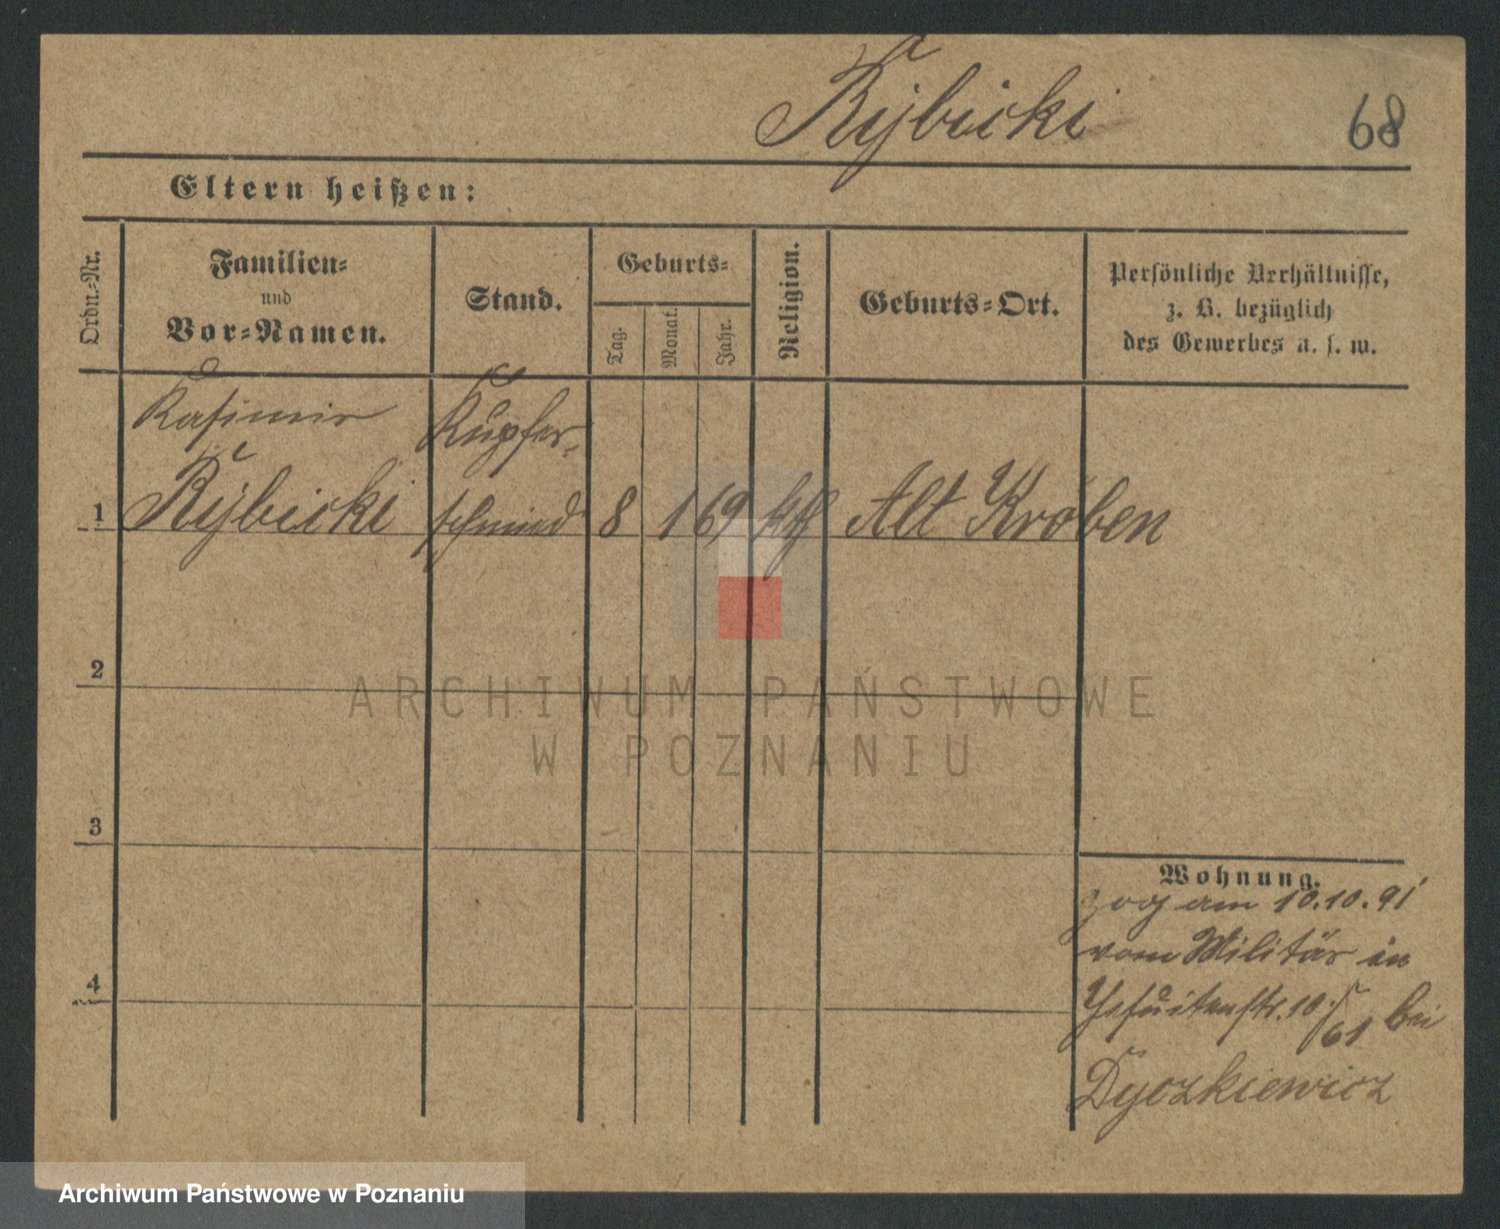 Rybicki
68
Eltern heißen:
Ordn.-Nr.
Familien-
und
Vor-Namen.
Stand.
Geburts-
Tag.
Monat.
Jahr.
Religion.
Geburts-Ort.
Persönliche Verhältnisse,
z. B. bezüglich
des Gewerbes u. s. w.
Kasimir
Kupfer-
1 Rybicki schmied 8 1 69 kth Alt Kröben
2
ARCHIWUM PAŃSTWOWE
W POZNANIU
3
Wohnung.
zog am 10.10.91
vom Militär in
4
Jesuitenstr. 10/61 bei
Dyczkiewicz
Archiwum Państwowe w Poznaniu